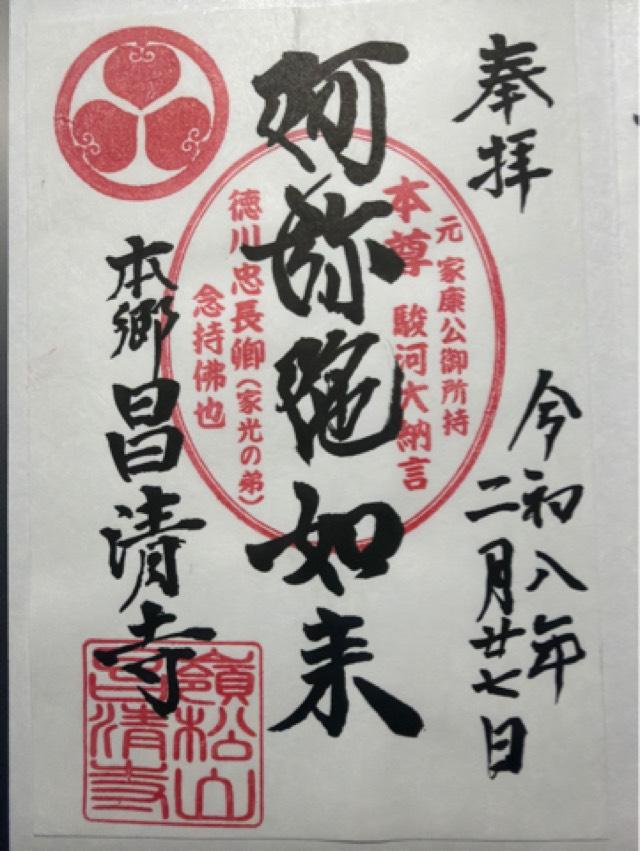 奉拝
令和八年
二月廿七日
阿弥陀如来
元 家康公御所持
本尊 駿河大納言
徳川忠長卿(家光の弟)
念持佛也
本郷 昌清寺
嶺松山
昌清寺